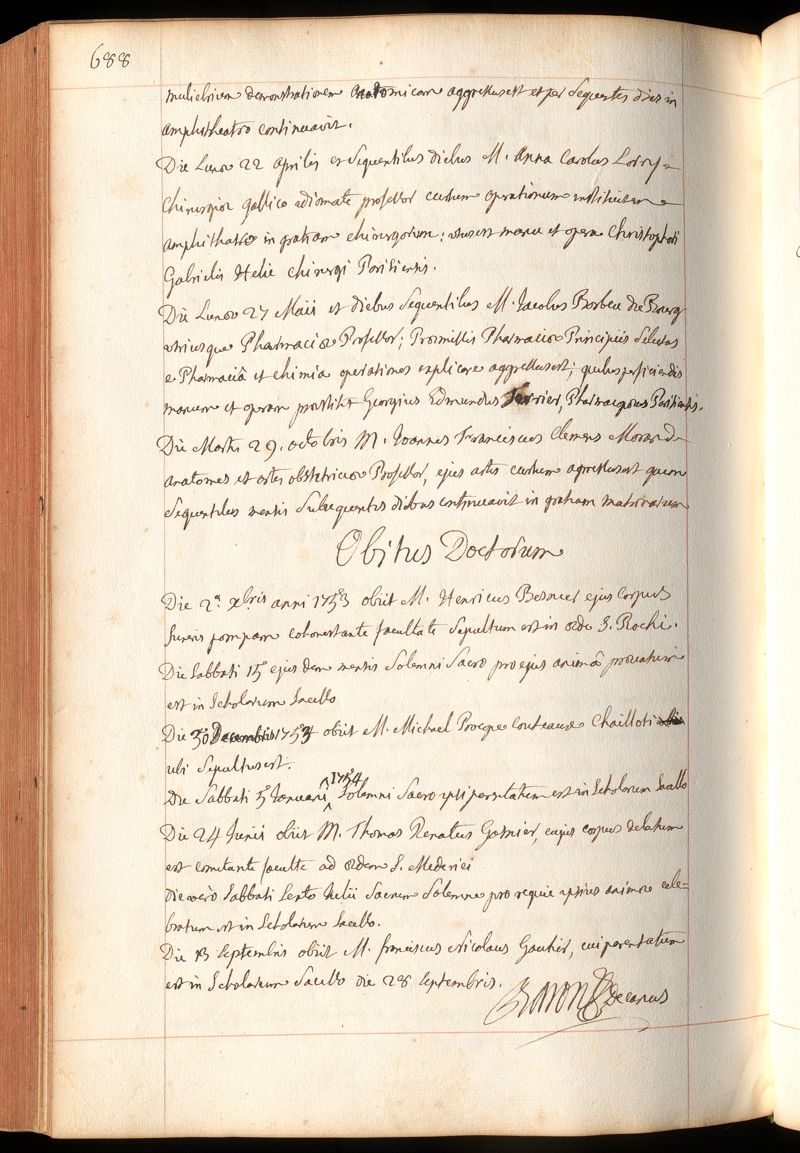 688
muliebrium demonstrationem anatomicam aggressus est et per sequentes dies in
amphitheatro continuavit.
Die Lunæ 22 aprilis et sequentibus diebus M. Anna Carolus Lorry
Chirurgiæ gallico idiomate professor cursum operationum instituit in
amphitheatro in gratiam chirurgorum; usus est manu et opera Christophori
Gabrielis Helie chirurgi Parisiensis.
Die Lunæ 27 Maii et diebus sequentibus M. Jacobus Barbeu du Bourg
utriusque Pharmaciæ Professor; Præmissis Pharmaciæ Principiis selectas
e Pharmaciâ et chimia operationes explicare aggressus est; quibus perficiendis
manum et operam præstitit Georgius Edmundus Ferrier, Pharmacopæus Parisiensis.
Die Martis 29. octobris M. Joannes Franciscus Clemens Morand
anatomes et artis obstetriciæ Professor, ejus artis cursum agressus est quem
sequentibus mensis subsequentis diebus continuavit in gratiam matronarum
Obitus Doctorum
Die 2ª xbris anni 1753 obiit M. Henricus Besnier ejus corpus
funeris pompam cohonestante facultate sepultum est in æde S. Rochi.
Die Sabbati 15 ejusdem mensis Solemni Sacro pro ejus animâ precatum
est in Scholarum Sacello
Die 30 Decembris 1753 obiit M. Michael Procope Couteaux Chailloti
ubi sepultus est.
Die Sabbati 5 Januarii 1754 Solemni Sacro ipsi parentatum est in Scholarum Sacello
Die 24 Junii obiit M. Thomas Renatus Gasnier, cujus corpus delatum
est comitante faculte ad ædem S. Mederici
Die vero Sabbati Sexto Julii Sacrum Solemne pro requie ipsius animæ cele=
bratum est in Scholarum Sacello.
Die 13 Septembris obiit M. franciscus Nicolaus Gauthier, cui parentatum
est in Scholarum Sacello die 28 septembris.
Baron decanus